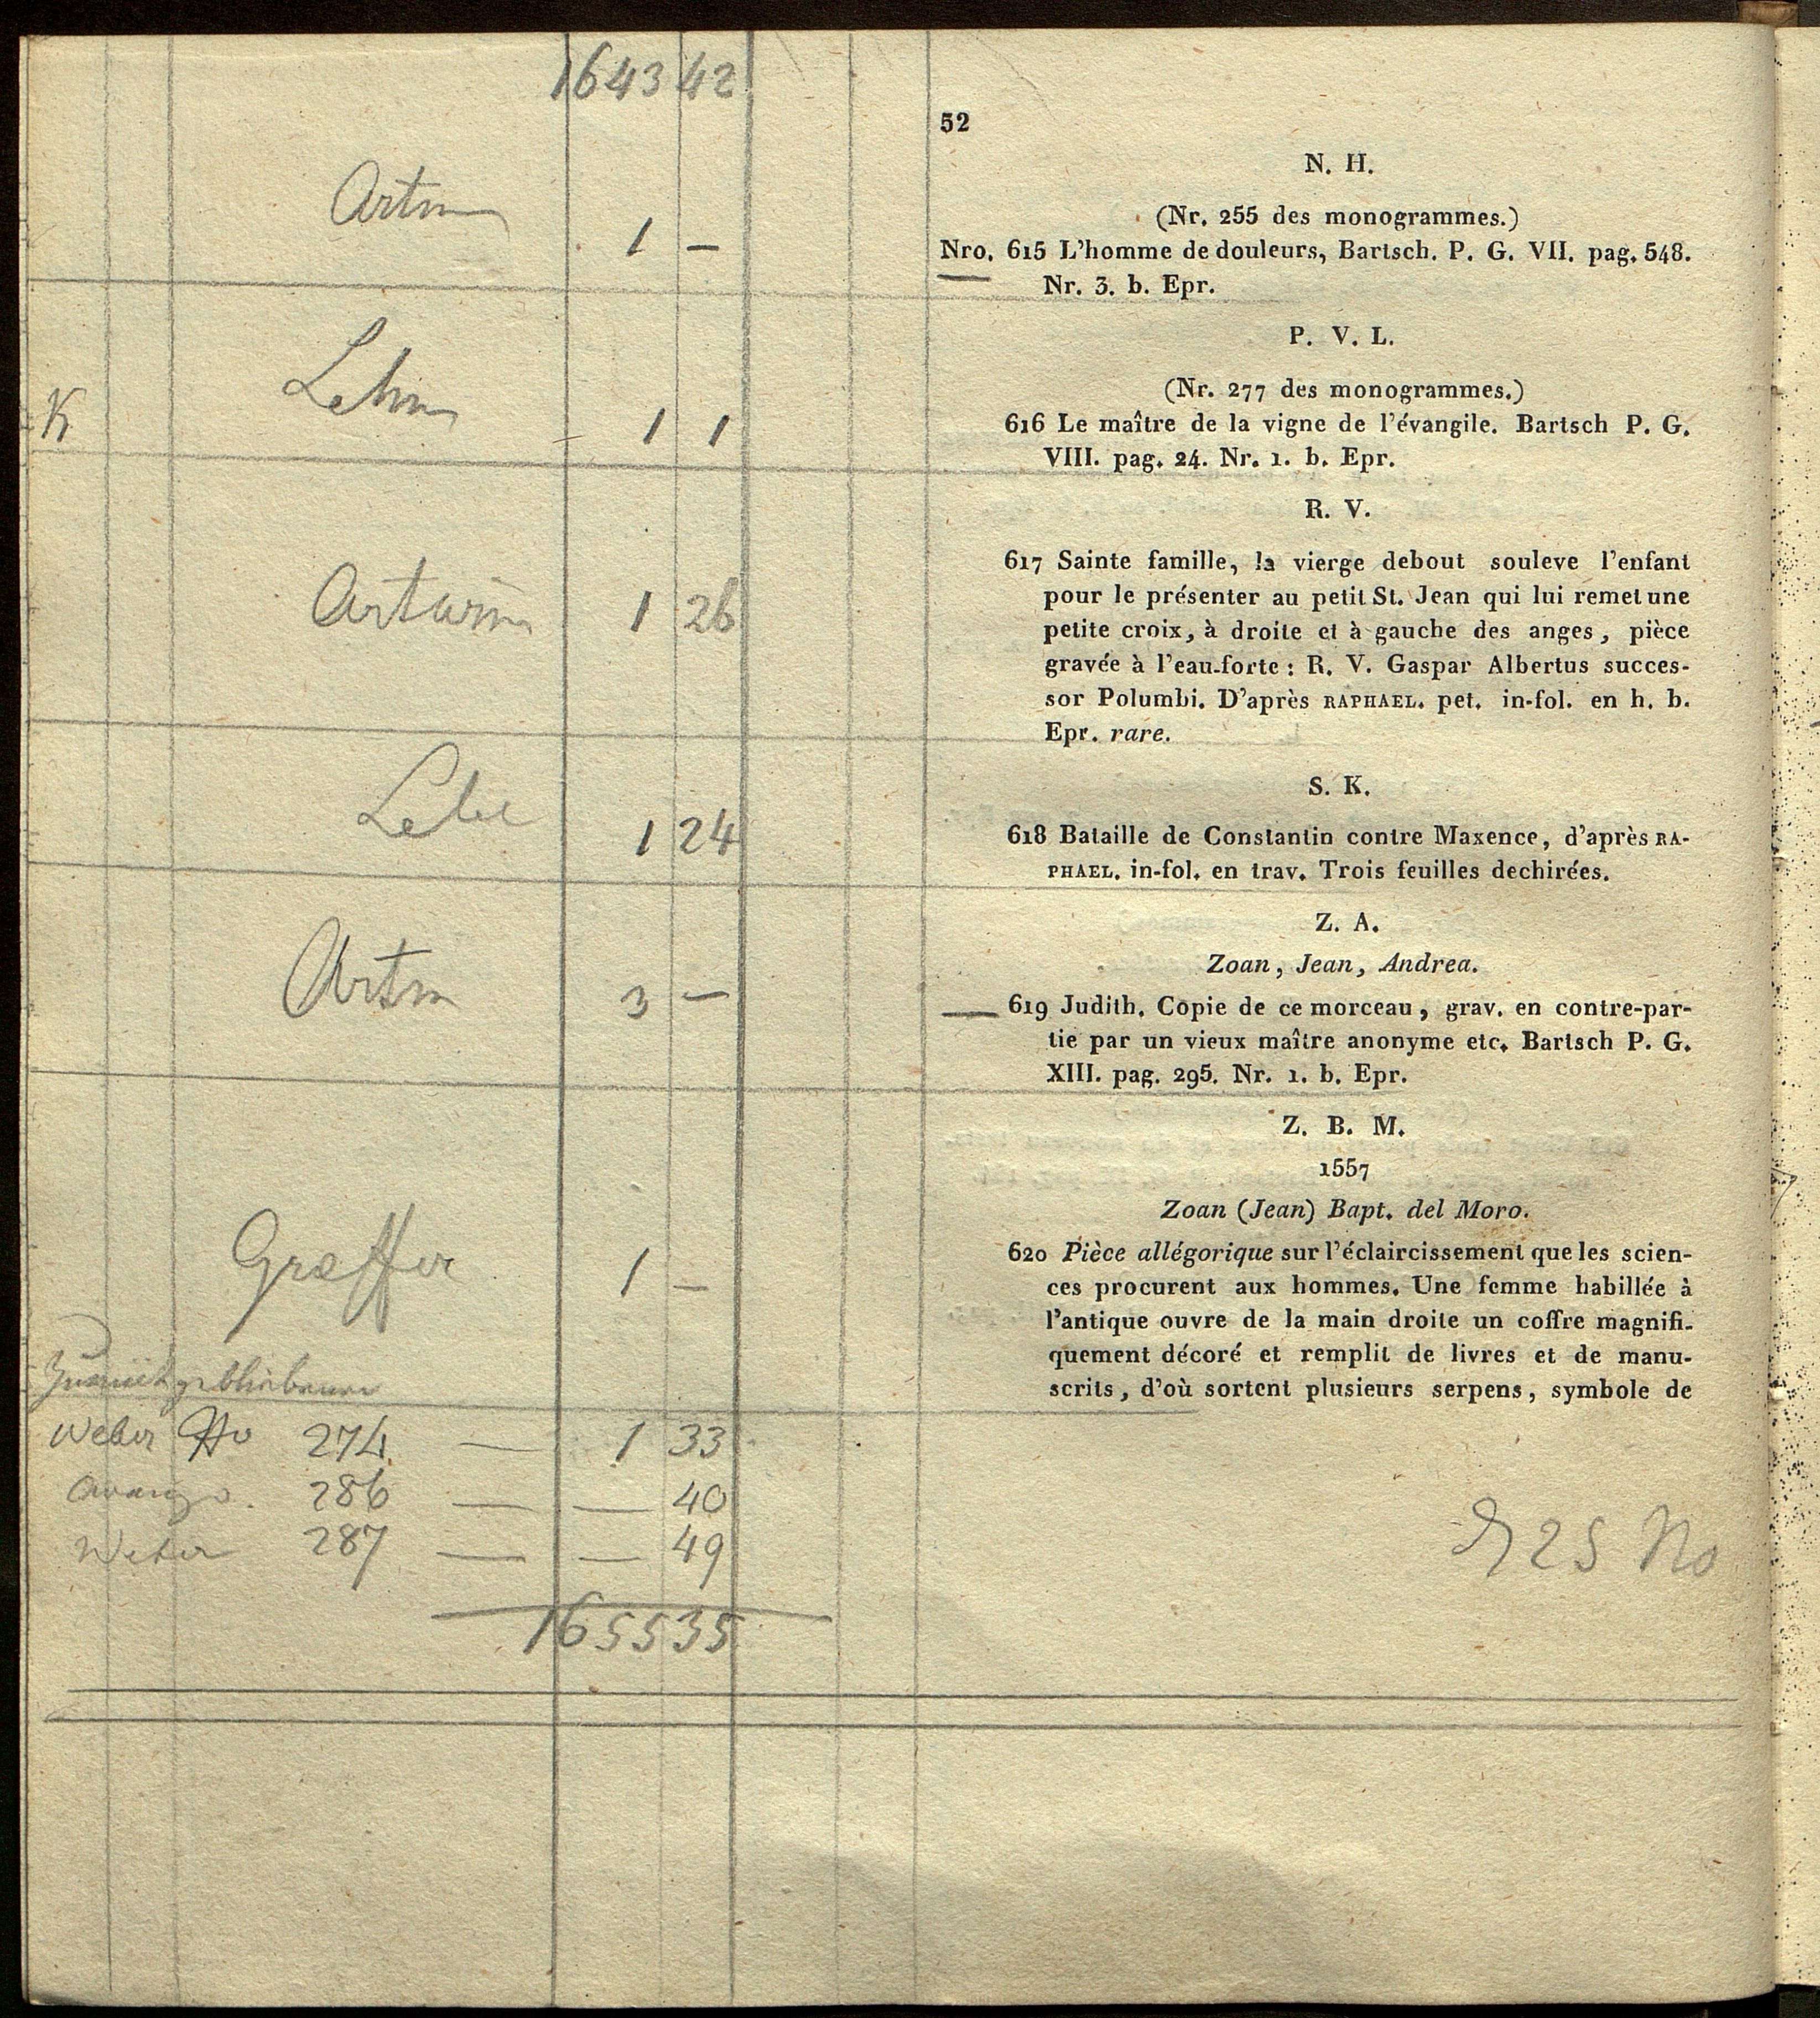 1643 42
52
N. H.
(Nr. 255 des monogrammes.)
Nro. 615 L'homme de douleurs, Bartsch. P. G. VII. pag. 548.
Nr. 3. b. Epr.
1 —
P. V. L.
(Nr. 277 des monogrammes.)
616 Le maître de la vigne de l'évangile. Bartsch P. G.
VIII. pag. 24. Nr. 1. b. Epr.
K
1 1
R. V.
617 Sainte famille, la vierge debout souleve l'enfant
pour le présenter au petit St. Jean qui lui remet une
petite croix, à droite et à gauche des anges, pièce
gravée à l'eau-forte: R. V. Gaspar Albertus succes-
sor Polumbi. D'après RAPHAEL. pet. in-fol. en h. b.
Epr. rare.
Artaria 1 26
S. K.
618 Bataille de Constantin contre Maxence, d'après RA-
PHAEL. in-fol. en trav. Trois feuilles dechirées.
1 24
Z. A.
Zoan, Jean, Andrea.
619 Judith. Copie de ce morceau, grav. en contre-par-
tie par un vieux maître anonyme etc. Bartsch P. G.
XIII. pag. 295. Nr. 1. b. Epr.
3 —
Z. B. M.
1557
Zoan (Jean) Bapt. del Moro.
620 Pièce allégorique sur l'éclaircissement que les scien-
ces procurent aux hommes. Une femme habillée à
l'antique ouvre de la main droite un coffre magnifi-
quement décoré et remplit de livres et de manu-
scrits, d'où sortent plusieurs serpens, symbole de
Græffer 1 —
Zurückgebliebene
Weber No 274 — 1 33
286 — — 40
Weber 287 — — 49
1655 35
25 No